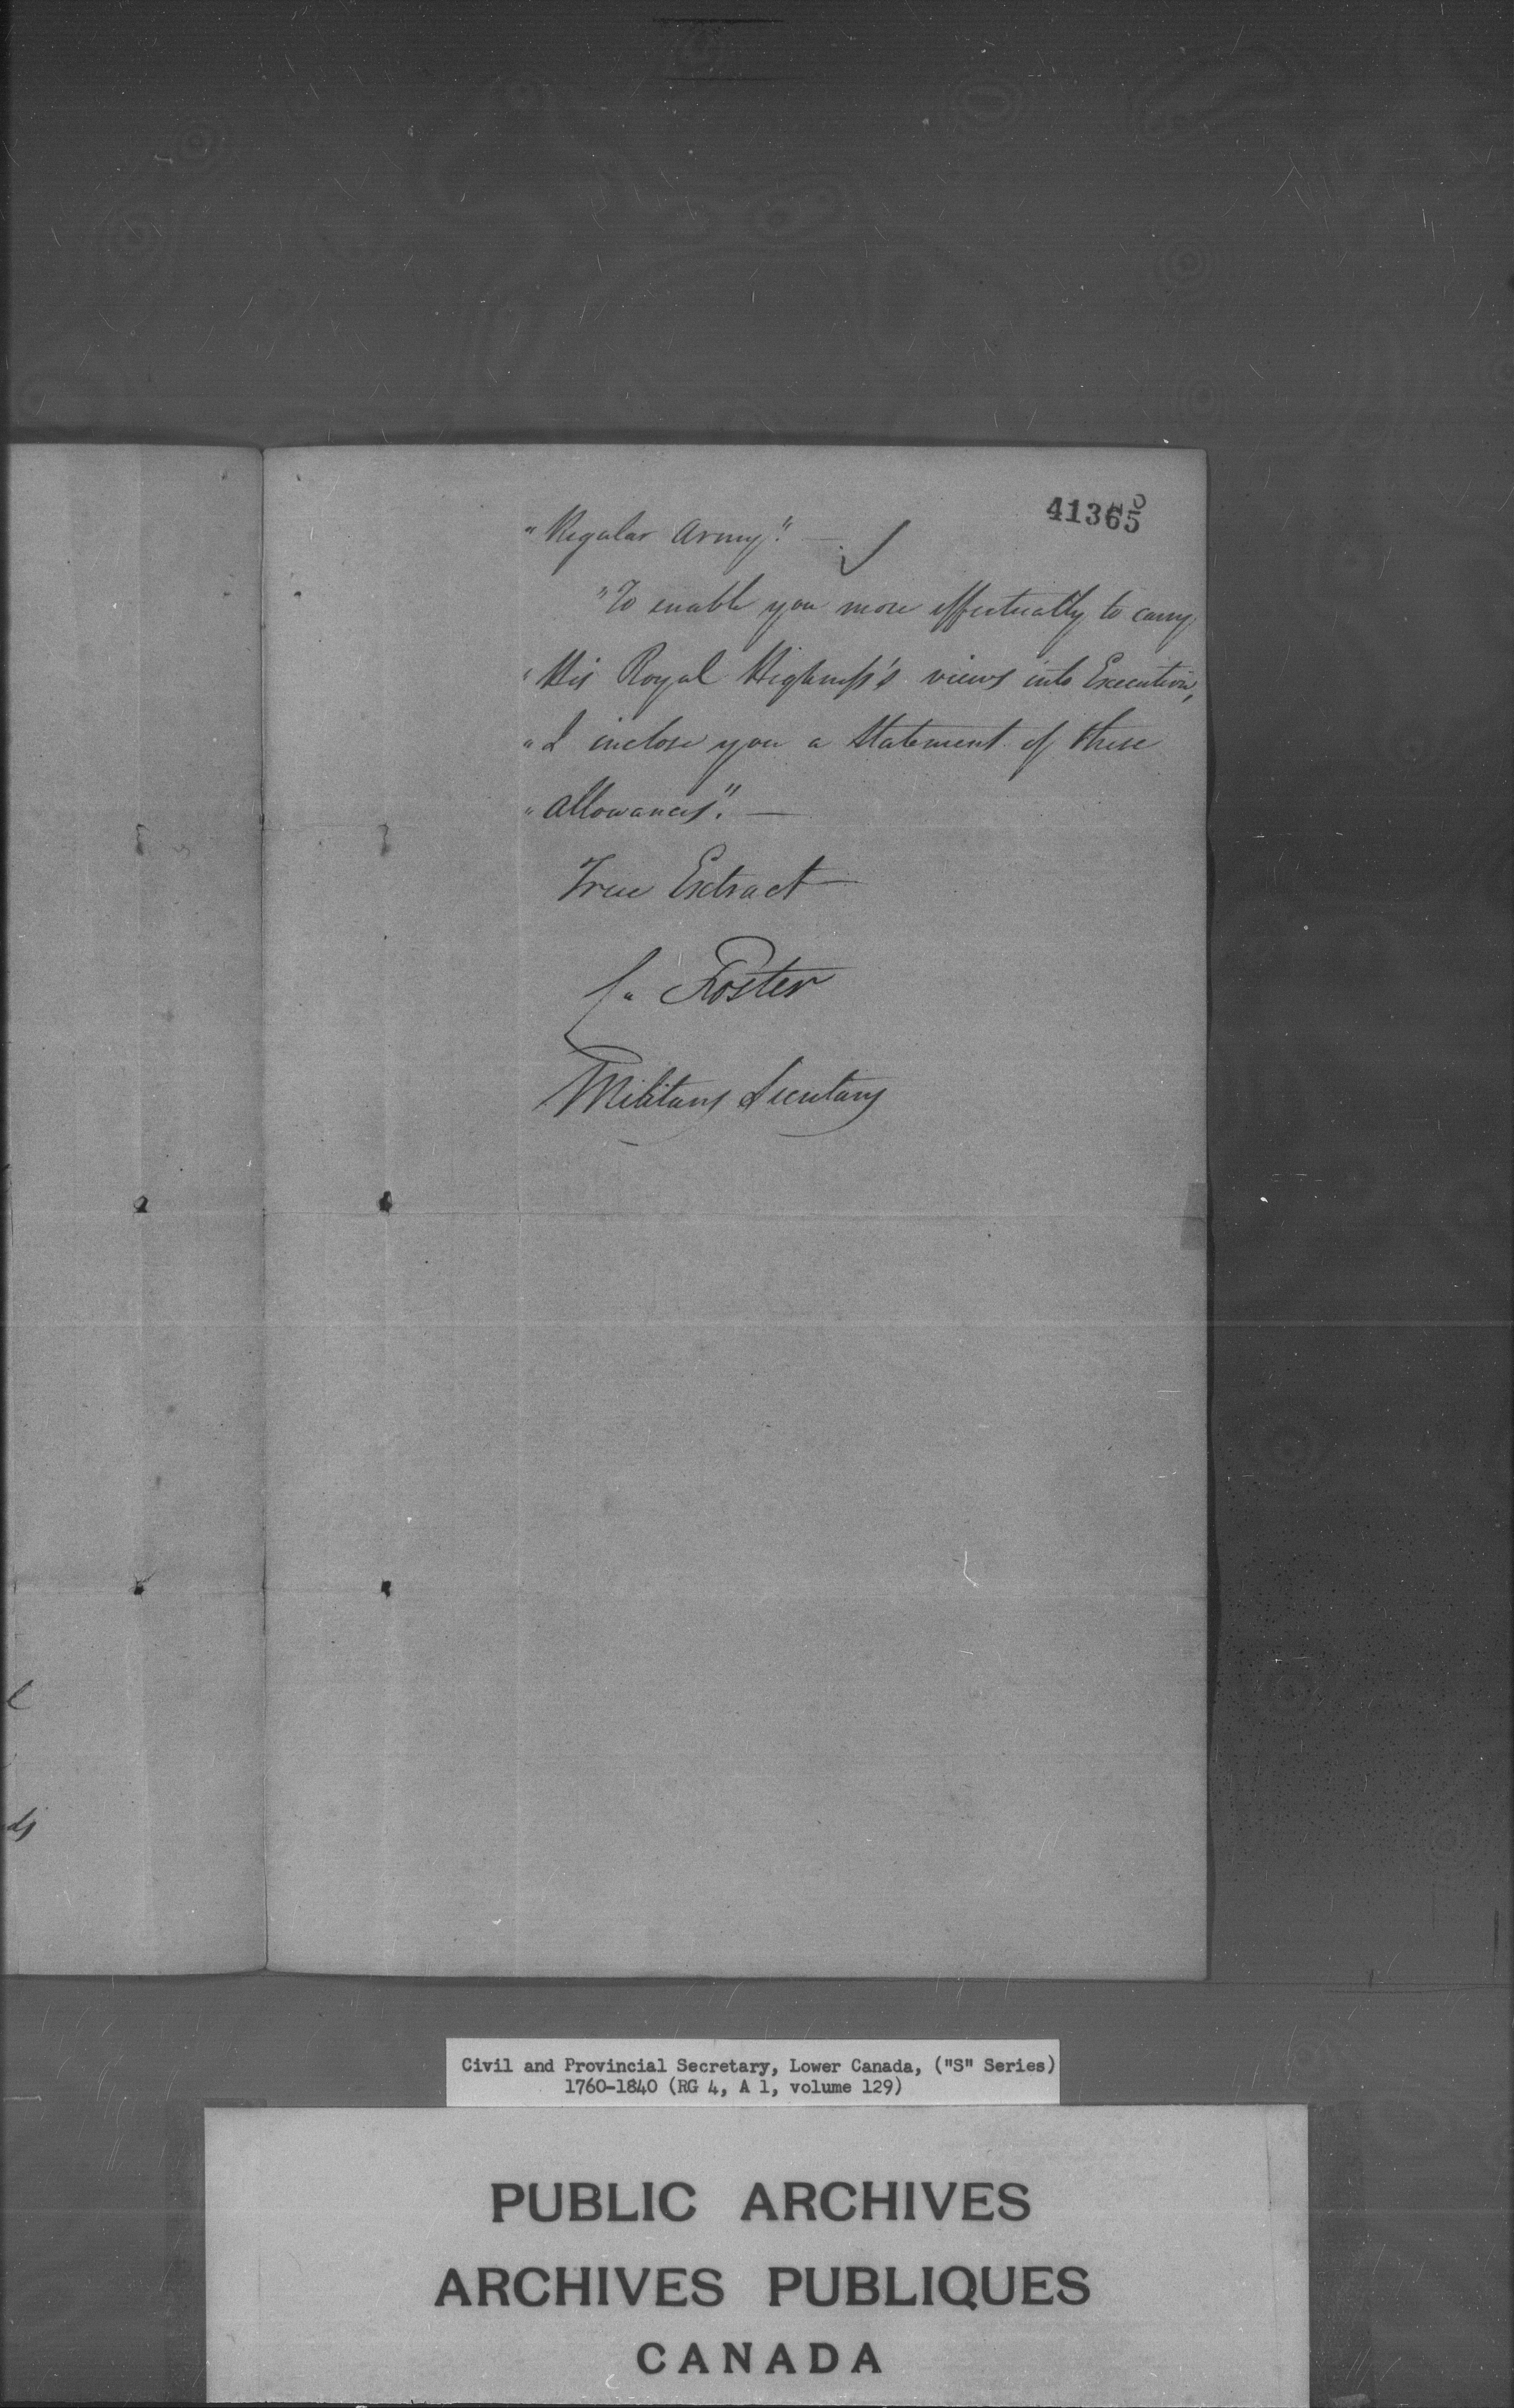 41365
0
"Regular Army". —
"To enable you more effectually to carry
"His Royal Highness's views into Execution,
"I inclose you a Statement of these
"allowances". —
True Extract
Foster
Military Secretary
l
ds
Civil and Provincial Secretary, Lower Canada, ("S" Series)
1760-1840 (RG 4, A 1, volume 129)
PUBLIC ARCHIVES
ARCHIVES PUBLIQUES
CANADA